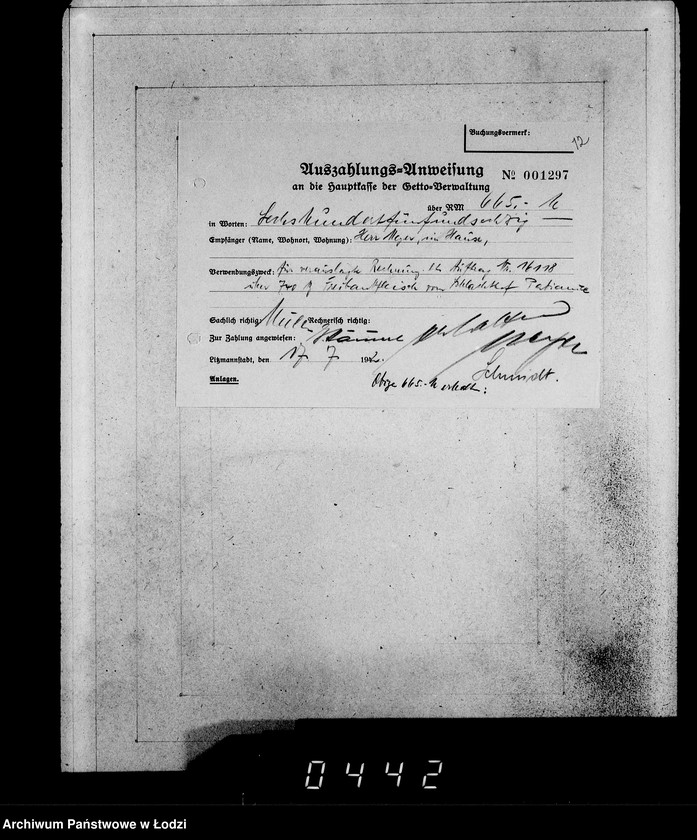 Buchungsvermerk:
12
Auszahlungs-Anweisung
№ 001297
an die Hauptkasse der Getto-Verwaltung
über RM 665.-
in Worten: Sechshundertfünfundsechzig
Empfänger (Name, Wohnort, Wohnung): Herr Meyer, im Hause,
Verwendungszweck: für verauslagte Rechnung Auftrag Nr. 16118
über Freibankfleisch vom Schlachthof Pabianice
Sachlich richtig: Rechnerisch richtig:
Zur Zahlung angewiesen:
Litzmannstadt, den 17 7 1942.
Schmidt.
Anlagen.
Obige 665.- erhalten:
0442
Archiwum Państwowe w Łodzi